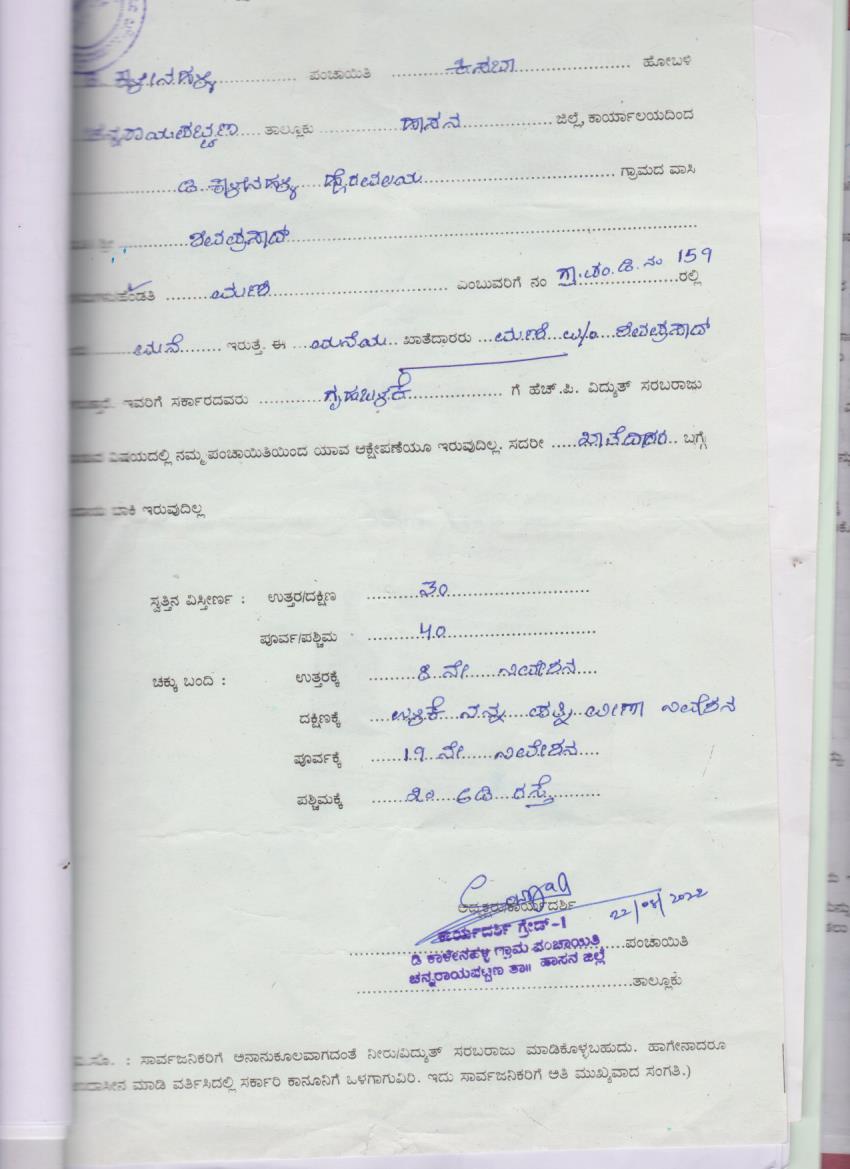 ಕಾಳೇನಹಳ್ಳಿ ............ ಪಂಚಾಯಿತಿ ............ ಕಸಬಾ ............ ಹೋಬಳಿ
ಚನ್ನರಾಯಪಟ್ಟಣ .... ತಾಲ್ಲೂಕು ............ ಹಾಸನ ............ ಜಿಲ್ಲೆ, ಕಾರ್ಯಾಲಯದಿಂದ
............ ಡಿ. ಕಾಳೇನಹಳ್ಳಿ ............ ಗ್ರಾಮದ ವಾಸಿ
ಶ್ರೀ ............ ಶಿವಪ್ರಸಾದ್ ............
ಹೆಂಡತಿ ........ ಮಣಿ ............ ಎಂಬುವರಿಗೆ ನಂ ಗ್ರಾ.ಪಂ.ಡಿ.ನಂ 159 ರಲ್ಲಿ
........ ಮನೆ ........ ಇರುತ್ತೆ. ಈ ... ಮನೆಯ .. ಖಾತೆದಾರರು ... ಮಣಿ ... w/o .... ಶಿವಪ್ರಸಾದ್
ಇವರಿಗೆ ಸರ್ಕಾರದವರು ............ ಗೃಹಬಳಕೆ ............ ಗೆ ಹೆಚ್.ಪಿ. ವಿದ್ಯುತ್ ಸರಬರಾಜು
ವಿಷಯದಲ್ಲಿ ನಮ್ಮ ಪಂಚಾಯಿತಿಯಿಂದ ಯಾವ ಆಕ್ಷೇಪಣೆಯೂ ಇರುವುದಿಲ್ಲ. ಸದರೀ ..... ಖಾತೆದಾರರ .. ಬಗ್ಗೆ
ಬಾಕಿ ಇರುವುದಿಲ್ಲ
ಸ್ವತ್ತಿನ ವಿಸ್ತೀರ್ಣ : ಉತ್ತರ/ದಕ್ಷಿಣ ............ 30 ............
ಪೂರ್ವ/ಪಶ್ಚಿಮ ............ 40 ............
ಚಕ್ಕು ಬಂದಿ : ಉತ್ತರಕ್ಕೆ ........ 8 ನೇ ...... ನಿವೇಶನ ....
ದಕ್ಷಿಣಕ್ಕೆ .... ಉಳಿಕೆ .... ನನ್ನ ..... ಪತ್ನಿ ... ವೀಣಾ ನಿವೇಶನ
ಪೂರ್ವಕ್ಕೆ ...... 19 ನೇ ...... ನಿವೇಶನ ....
ಪಶ್ಚಿಮಕ್ಕೆ ...... ೩೦ ... ಅಡಿ .... ರಸ್ತೆ ........
ಅಧ್ಯಕ್ಷರು/ಕಾರ್ಯದರ್ಶಿ 22/08/2022
ಕಾರ್ಯದರ್ಶಿ ಗ್ರೇಡ್-I
ಡಿ ಕಾಳೇನಹಳ್ಳಿ ಗ್ರಾಮ ಪಂಚಾಯಿತಿ ........ ಪಂಚಾಯಿತಿ
ಚನ್ನರಾಯಪಟ್ಟಣ ತಾ॥ ಹಾಸನ ಜಿಲ್ಲೆ
............ ತಾಲ್ಲೂಕು
ವಿ.ಸೂ. : ಸಾರ್ವಜನಿಕರಿಗೆ ಅನಾನುಕೂಲವಾಗದಂತೆ ನೀರು/ವಿದ್ಯುತ್ ಸರಬರಾಜು ಮಾಡಿಕೊಳ್ಳಬಹುದು. ಹಾಗೇನಾದರೂ
ಉದಾಸೀನ ಮಾಡಿ ವರ್ತಿಸಿದಲ್ಲಿ ಸರ್ಕಾರಿ ಕಾನೂನಿಗೆ ಒಳಗಾಗುವಿರಿ. ಇದು ಸಾರ್ವಜನಿಕರಿಗೆ ಅತಿ ಮುಖ್ಯವಾದ ಸಂಗತಿ.)